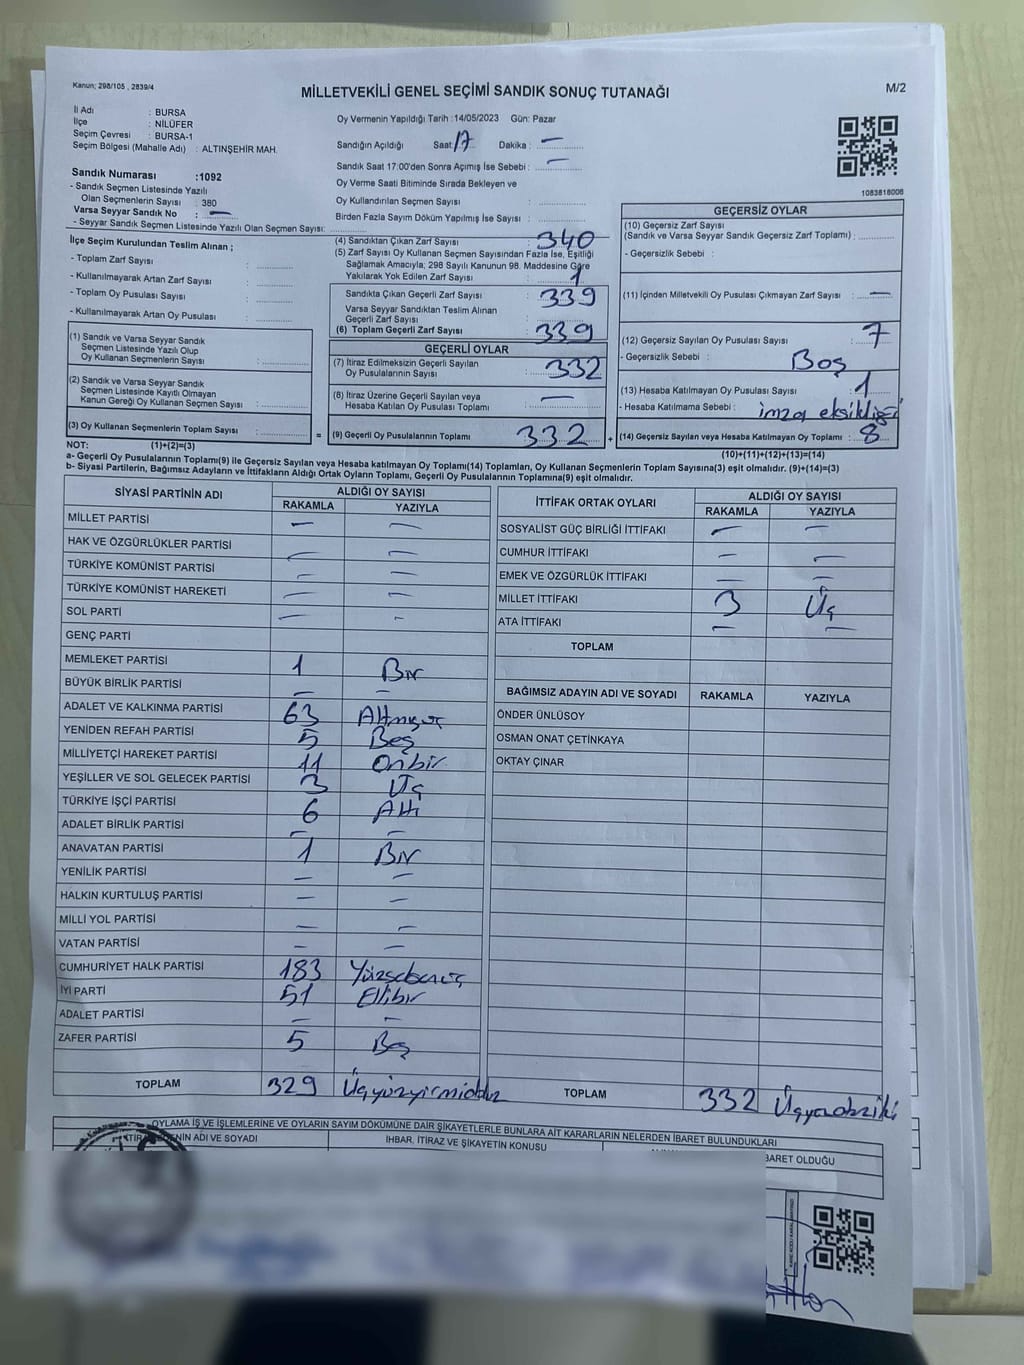 Kanun; 298/105 , 2839/4
MİLLETVEKİLİ GENEL SEÇİMİ SANDIK SONUÇ TUTANAĞI
M/2
İl Adı : BURSA
İlçe : NİLÜFER
Seçim Çevresi : BURSA-1
Seçim Bölgesi (Mahalle Adı) : ALTINŞEHİR MAH.
Oy Vermenin Yapıldığı Tarih :14/05/2023 Gün: Pazar
Sandığın Açıldığı Saat 17 Dakika : —
Sandık Saat 17:00'den Sonra Açımış İse Sebebi : —
Oy Verme Saati Bitiminde Sırada Bekleyen ve
Oy Kullandırılan Seçmen Sayısı :
Birden Fazla Sayım Döküm Yapılmış İse Sayısı :
1083818006
Sandık Numarası :1092
- Sandık Seçmen Listesinde Yazılı
Olan Seçmenlerin Sayısı : 380
Varsa Seyyar Sandık No : —
- Seyyar Sandık Seçmen Listesinde Yazılı Olan Seçmen Sayısı:
İlçe Seçim Kurulundan Teslim Alınan ;
- Toplam Zarf Sayısı :
- Kullanılmayarak Artan Zarf Sayısı :
- Toplam Oy Pusulası Sayısı :
- Kullanılmayarak Artan Oy Pusulası :
(1) Sandık ve Varsa Seyyar Sandık
Seçmen Listesinde Yazılı Olup
Oy Kullanan Seçmenlerin Sayısı :
(2) Sandık ve Varsa Seyyar Sandık
Seçmen Listesinde Kayıtlı Olmayan
Kanun Gereği Oy Kullanan Seçmen Sayısı :
(3) Oy Kullanan Seçmenlerin Toplam Sayısı :
(4) Sandıktan Çıkan Zarf Sayısı : 340
(5) Zarf Sayısı Oy Kullanan Seçmen Sayısından Fazla İse, Eşitliği
Sağlamak Amacıyla; 298 Sayılı Kanunun 98. Maddesine Göre
Yakılarak Yok Edilen Zarf Sayısı : 1
Sandıkta Çıkan Geçerli Zarf Sayısı : 339
Varsa Seyyar Sandıktan Teslim Alınan
Geçerli Zarf Sayısı :
(6) Toplam Geçerli Zarf Sayısı : 339
GEÇERLİ OYLAR
(7) İtiraz Edilmeksizin Geçerli Sayılan
Oy Pusulalarının Sayısı : 332
(8) İtiraz Üzerine Geçerli Sayılan veya
Hesaba Katılan Oy Pusulası Toplamı : —
= (9) Geçerli Oy Pusulalarının Toplamı 332 +
GEÇERSİZ OYLAR
(10) Geçersiz Zarf Sayısı
(Sandık ve Varsa Seyyar Sandık Geçersiz Zarf Toplamı) :
- Geçersizlik Sebebi :
(11) İçinden Milletvekili Oy Pusulası Çıkmayan Zarf Sayısı : —
(12) Geçersiz Sayılan Oy Pusulası Sayısı : 7
- Geçersizlik Sebebi : Boş
(13) Hesaba Katılmayan Oy Pusulası Sayısı : 1
- Hesaba Katılmama Sebebi : imza eksikliği
(14) Geçersiz Sayılan veya Hesaba Katılmayan Oy Toplamı : 8
NOT: (1)+(2)=(3)
(10)+(11)+(12)+(13)=(14)
a- Geçerli Oy Pusulalarının Toplamı(9) ile Geçersiz Sayılan veya Hesaba katılmayan Oy Toplamı(14) Toplamları, Oy Kullanan Seçmenlerin Toplam Sayısına(3) eşit olmalıdır. (9)+(14)=(3)
b- Siyasi Partilerin, Bağımsız Adayların ve İttifakların Aldığı Ortak Oyların Toplamı, Geçerli Oy Pusulalarının Toplamına(9) eşit olmalıdır.
SİYASİ PARTİNİN ADI ALDIĞI OY SAYISI
RAKAMLA YAZIYLA
MİLLET PARTİSİ — —
HAK VE ÖZGÜRLÜKLER PARTİSİ — —
TÜRKİYE KOMÜNİST PARTİSİ — —
TÜRKİYE KOMÜNİST HAREKETİ — —
SOL PARTİ — -
GENÇ PARTİ
MEMLEKET PARTİSİ 1 Bir
BÜYÜK BİRLİK PARTİSİ — —
ADALET VE KALKINMA PARTİSİ 63 Altmışüç
YENİDEN REFAH PARTİSİ 5 Beş
MİLLİYETÇİ HAREKET PARTİSİ 11 Onbir
YEŞİLLER VE SOL GELECEK PARTİSİ 3 Üç
TÜRKİYE İŞÇİ PARTİSİ 6 Altı
ADALET BİRLİK PARTİSİ — —
ANAVATAN PARTİSİ 1 Bir
YENİLİK PARTİSİ — —
HALKIN KURTULUŞ PARTİSİ — —
MİLLİ YOL PARTİSİ — —
VATAN PARTİSİ — —
CUMHURİYET HALK PARTİSİ 183 Yüzseksenüç
İYİ PARTİ 51 Ellibir
ADALET PARTİSİ — -
ZAFER PARTİSİ 5 Beş
TOPLAM 329 Üçyüzyirmidokuz
İTTİFAK ORTAK OYLARI ALDIĞI OY SAYISI
RAKAMLA YAZIYLA
SOSYALİST GÜÇ BİRLİĞİ İTTİFAKI — —
CUMHUR İTTİFAKI — —
EMEK VE ÖZGÜRLÜK İTTİFAKI — —
MİLLET İTTİFAKI 3 Üç
ATA İTTİFAKI — —
TOPLAM
BAĞIMSIZ ADAYIN ADI VE SOYADI RAKAMLA YAZIYLA
ÖNDER ÜNLÜSOY
OSMAN ONAT ÇETİNKAYA
OKTAY ÇINAR
TOPLAM 332 Üçyüzotuziki
OYLAMA İŞ VE İŞLEMLERİNE VE OYLARIN SAYIM DÖKÜMÜNE DAİR ŞİKAYETLERLE BUNLARA AİT KARARLARIN NELERDEN İBARET BULUNDUKLARI
ADI VE SOYADI İHBAR, İTİRAZ VE ŞİKAYETİN KONUSU OLDUĞU